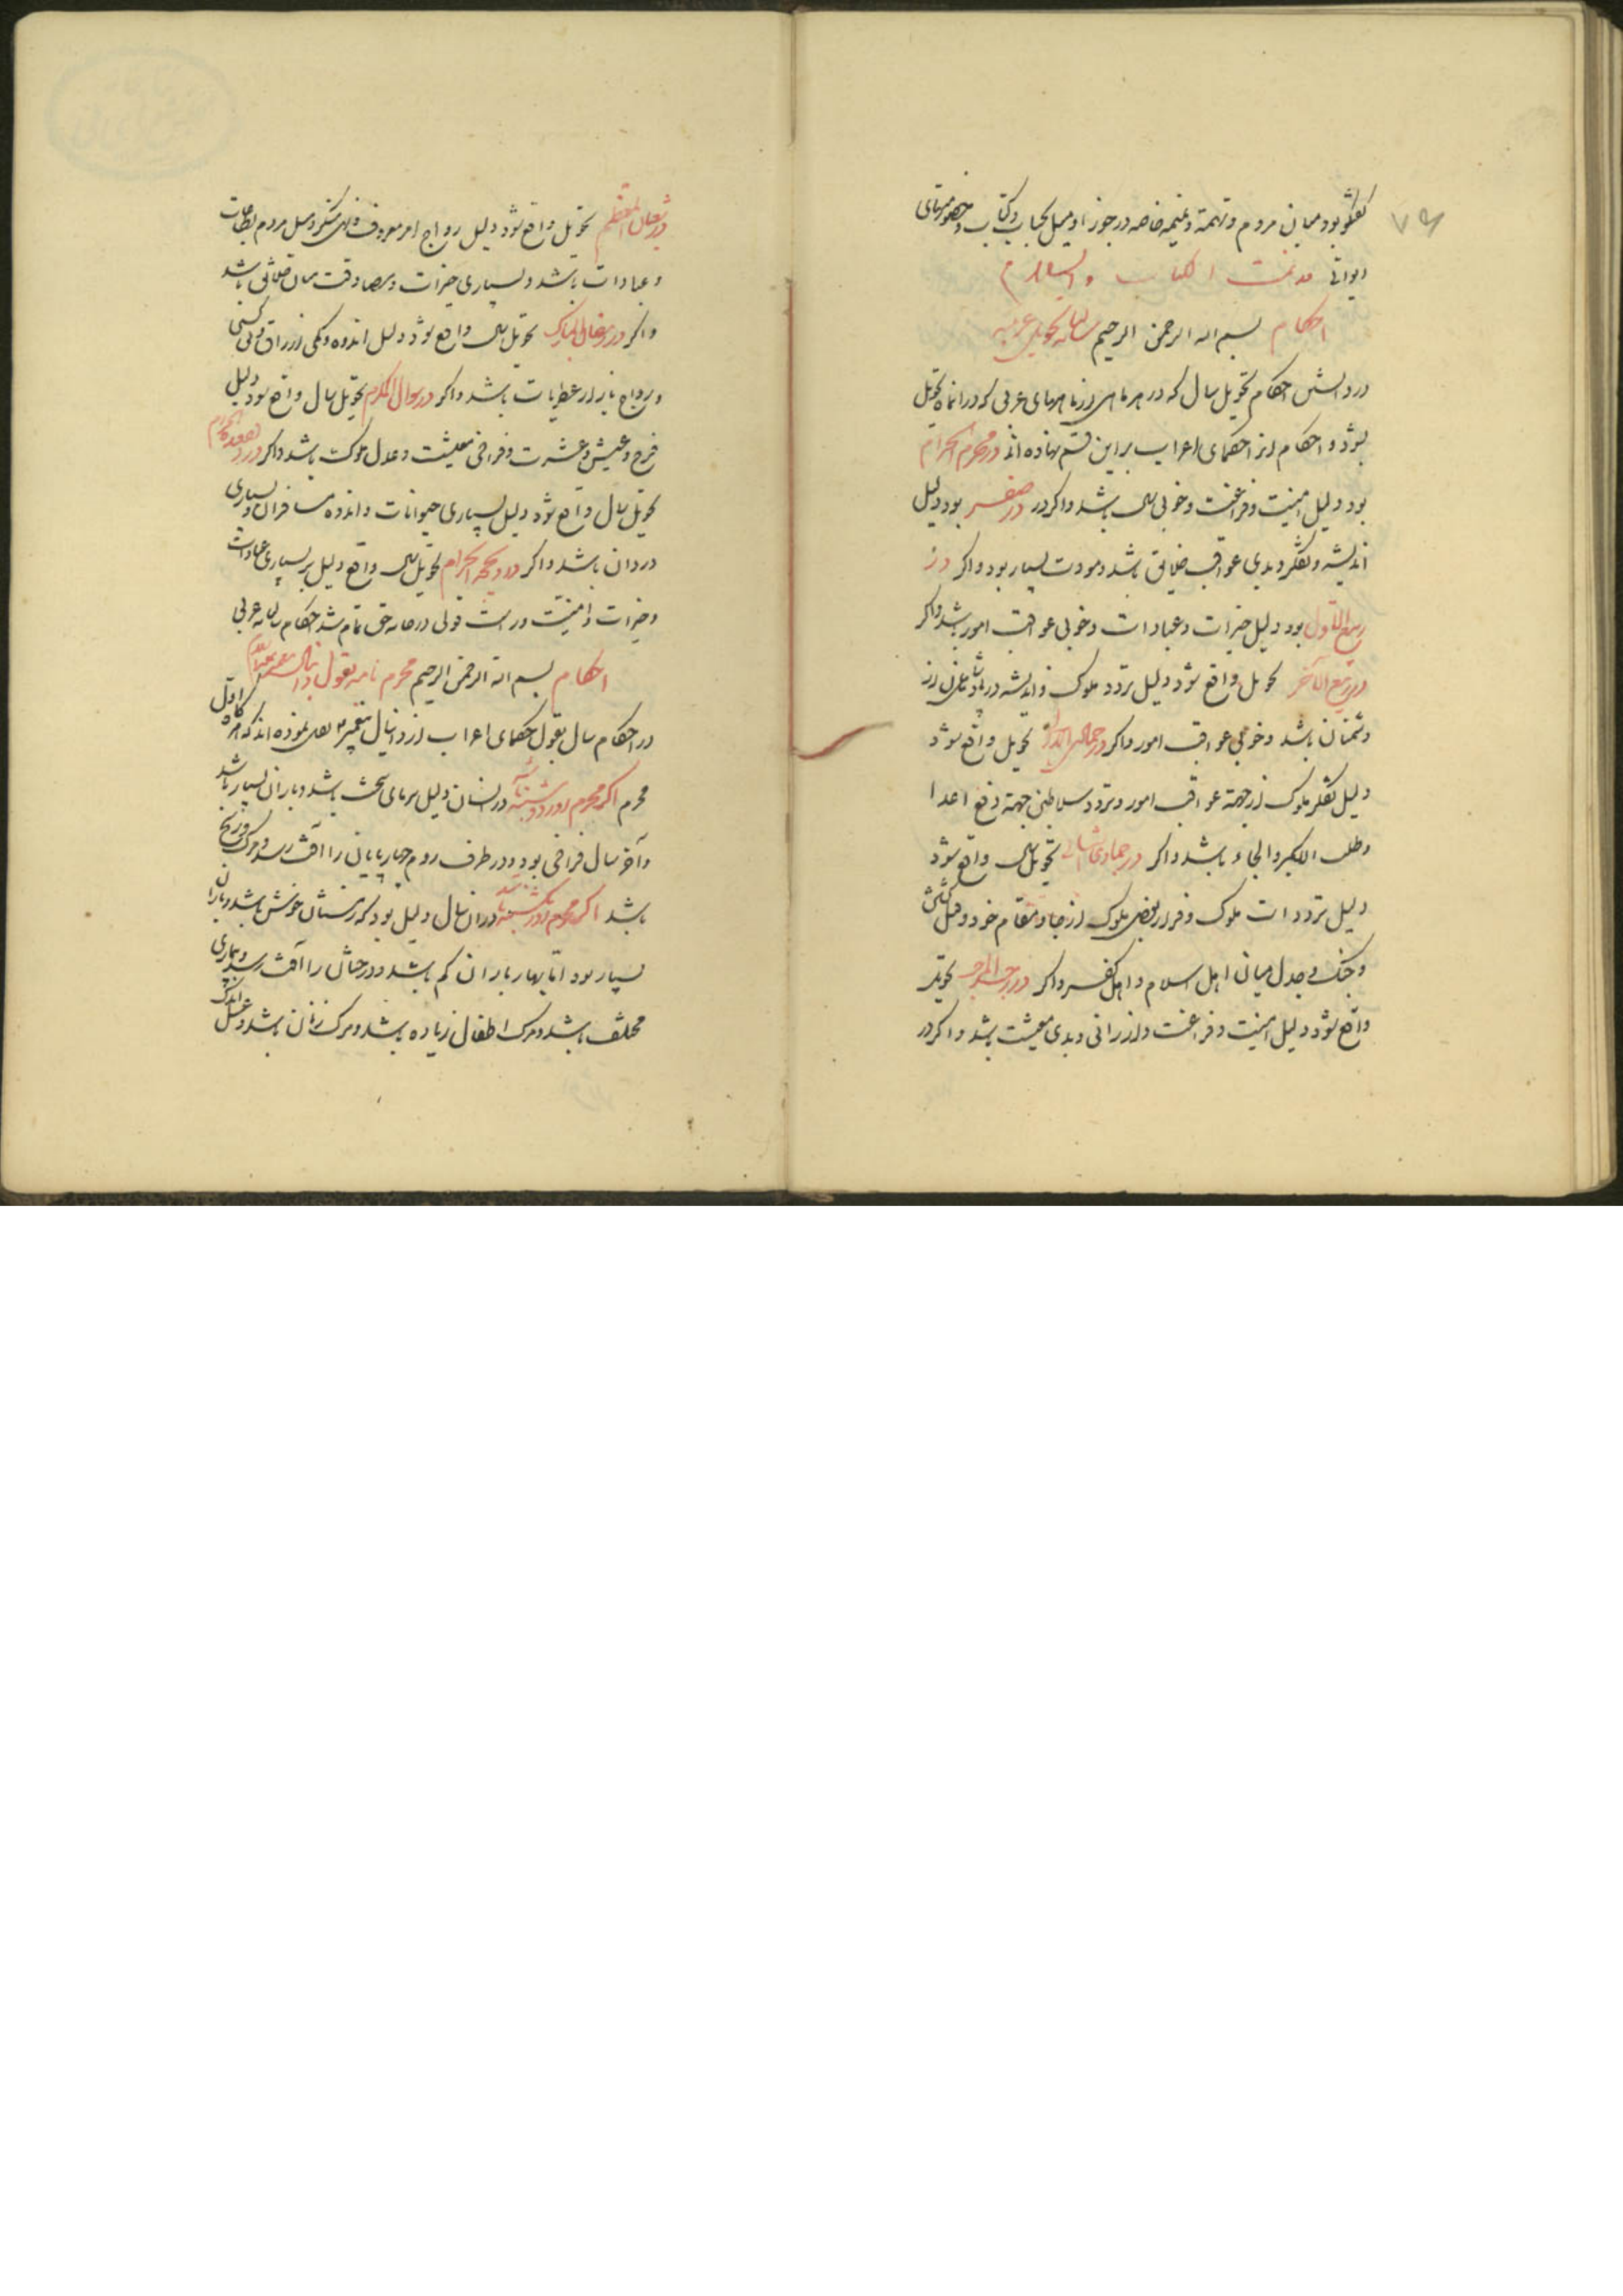 ۷۹
گفتگو بود میان مردم و تهمة و نمیمه خاصه در جوزا و میل بحساب و کتاب و خصومتهای
دیوانی تمت الکتاب والسلام
احکام بسم الله الرحمن الرحیم سالنامه تحویل عربیه
در دانستن احکام تحویل سال که در هر ماهی از ماههای عربی که در انماه تحویل
شود و احکام از احکمای اعراب بر این قسم نهاده اند در محرم الحرام
بود دلیل امنیت و فراغت و خوبی سال باشد واکر در در صفر بود دلیل
اندیشه و تفکر و بدی عواقب خلایق باشد و مودت بسیار بود واکر در
ربیع الاول بود دلیل خیرات و عبادات و خوبی عواقب امور باشد واکر
در ربیع الآخر تحویل واقع شود دلیل تردد ملوک و اندیشه در پادشاهان از
دشمنان باشد و خوبی عواقب امور واکر در جمادی الاول تحویل واقع شود
دلیل تفکر ملوک از جهة عواقب امور و تردد سلاطین جهة دفع اعدا
وطلب باشد واکر در جمادی الثانی تحویل سال واقع شود
دلیل ترددات ملوک و فرار بعضی ملوک از جا و مقام خود و
و جنک و جدل میان اهل اسلام و اهل کفر واکر در رجب المرجب تحویل
واقع شود دلیل امنیت و فراغت و ارزانی و بدی معیشت باشد واکر در
در شعبان المعظم تحویل واقع شود دلیل رواج امر معروف و نهی منکر و میل مردم بطاعات
و عبادات باشد و بسیاری خیرات و مصادقت میان خلائق باشد
واکر در رمضان المبارک تحویل سال واقع شود دلیل اندوه و تنکی ارزاق
و رواج بازار عطریات باشد واکر در شوال المکرم تحویل سال واقع شود دلیل
فرح و عیش و عشرت و فراخی معیشت و عدل ملوک باشد واکر در ذیقعدة الحرام
تحویل سال واقع شود دلیل بسیاری حیوانات و اندوه مسافران و بسیاری
دزدان باشد واکر در ذیحجه الحرام تحویل سال واقع دلیل بر بسیاری عبادات
و خیرات و امنیت و راست قولی تمام شد احکام سالنامه عربی
احکام بسم الله الرحمن الرحیم محرم نامه بقول دانیال پیغمبر
در احکام سال بقول حکمای اعراب از دانیال پیغمبر نقل نموده اند که هرکاه اول
محرم اکر محرم روز دوشنبه باشد در انسال دلیل سرمای سخت باشد و باران بسیار باشد
و آخر سال فراخی بود و در طرف روم چهارپایان را آفت رسد و مرک و رنج
باشد اکر محرم روز یکشنبه باشد در ان سال دلیل بود که زمستان خوش باشد و باران
بسیار بود اما بهار باران کم باشد و درختان را آفت رسد و بیماری
مختلف باشد و مرک اطفال زیاده باشد و مرک زنان باشد و عسل اندک